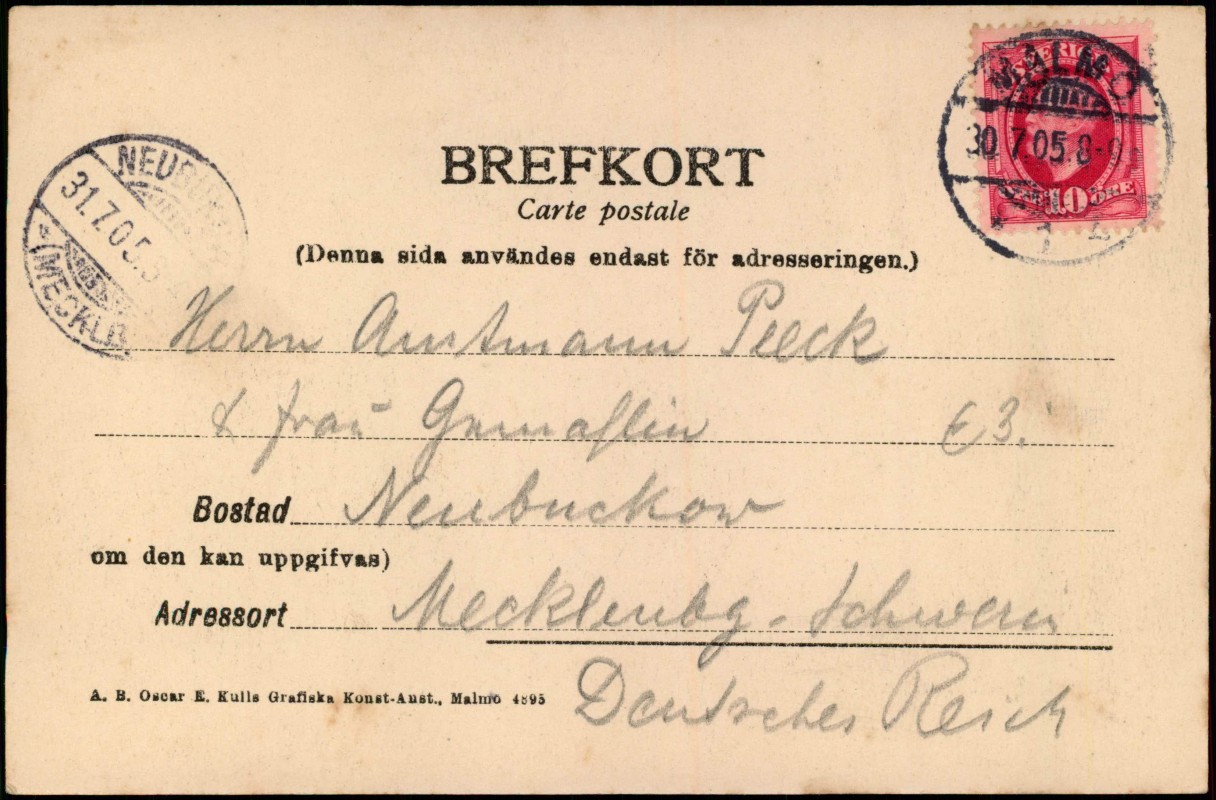 SVERIGE
MALMÖ
30.7.05.8-9
10 ÖRE
BREFKORT
Carte postale
(Denna sida användes endast för adresseringen.)
31.7.05.
MECKLB
Herrn Amtmann Peeck
& Frau Gemahlin E3.
Bostad Neubuckow
om den kan uppgifvas)
Adressort Mecklenbg. Schwerin
Deutsches Reich
A. B. Oscar E. Kulls Grafiska Konst-Anst., Malmö 4895